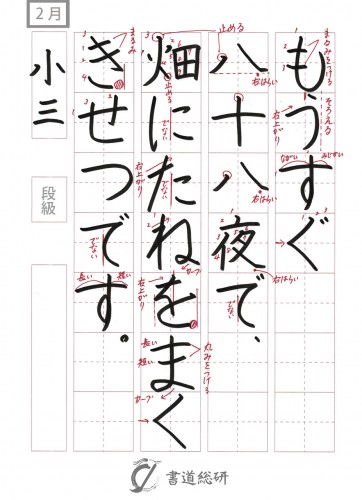 2月
もうすぐ
八十八夜で、
畑にたねをまく
きせつです。
小三
段級
まるみをつける
そろえる
右上がり
ながい
みじかい
止める
右はらい
右はらい
でない
右はらい
止める
でない
右上がり
カーブ
右上がり
丸みをつける
長い
短い
カーブ
まるみ
でない
長い
短い
書道総研